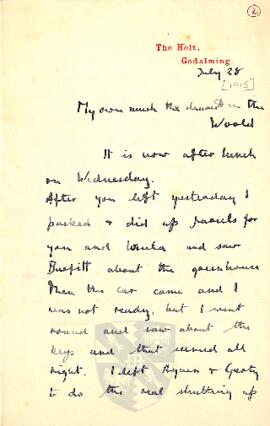 2
The Holt.
Godalming
July 28
[1915]
My own much the dearest in the
World
It is now after lunch
on Wednesday.
After you left yesterday I
packed & did up parcels for
you and and saw
about the greenhouse
Then the car came and I
was not ready, but I went
round and saw about the
keys and that seemed all
right. I left & Gerty
to do the real shutting up